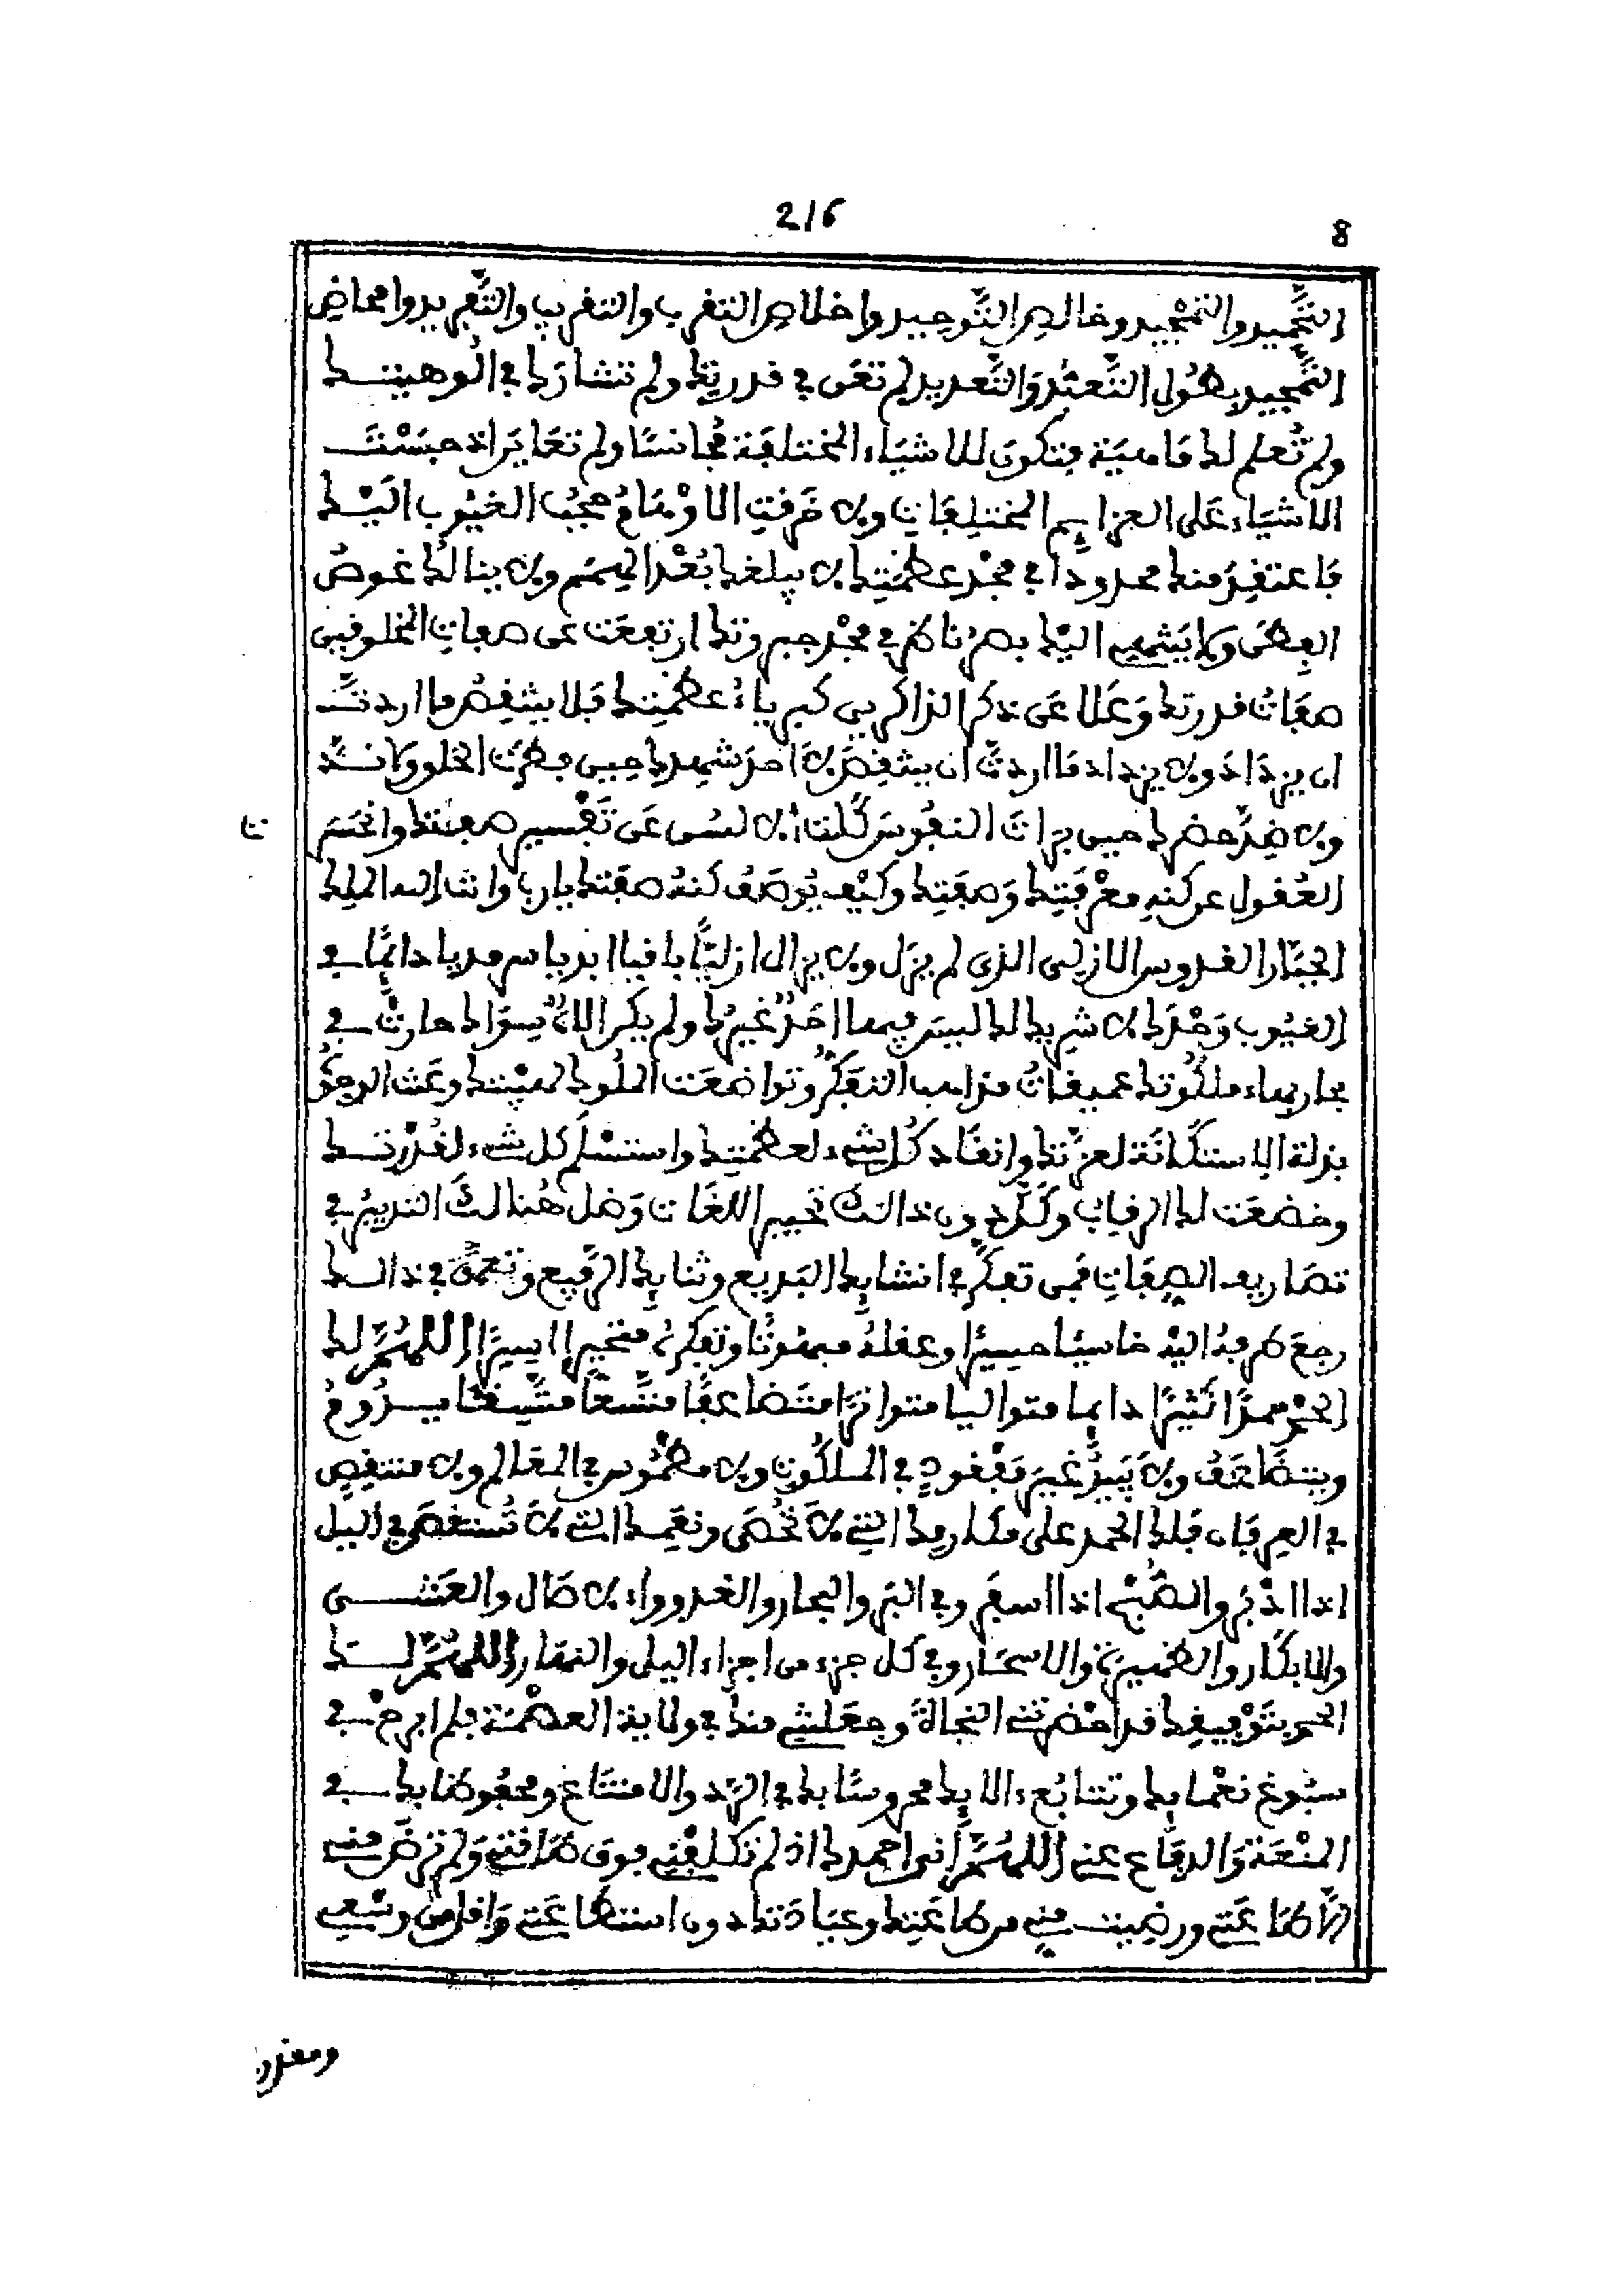 216
8
التحميد والتمجيد وخالص التوحيد واخلاص التقرب والتقريب والتفريد وامحاض
التمجيد بطول التعبد والتعديد لم تعن في قدرتك ولم تشارك في ألوهيتك
ولم تُعلم لك مَاهيَة فتكون للاشيَاء المختلفة مُجانسًا ولم تعَايَن اذ حبَسْتَ
الاشيَاء عَلى العزايم المختلِفات ولا خَرقتِ الاوْهَامُ حجُبَ الغيُوب اليْك
فاعتقِدَ منك محدودا في مجْد عظمَتِك لا يبلغك بُعْد الهِمَم ولا ينالُك غوصُ
الفِطَن ولا يَنتهي اليْك بصرُ ناظر في مجْد جبروتك ارتفعَت عن صفات المخلوقين
صفَاتُ قدرتك وَعَلا عَن ذكر الذاكرين كبرياءُ عظمتِك فلا ينتقِصُ ما اردتَّ
ان يزدَادَ ولا يزداد مَا اردتَّ أن ينتقِصَ لا أحدَ شهِدك حِين فطرْتَ الخلق ولا نِدَّ
ولا ضِدَّ حضرك حين برَاتَ النفُوسَ كَلّت الالسُن عَن تَفْسير صفتك وانحسَرَ
ت
العُقول عن كنهِ معْرفَتِك وَصفَتِك وكيْف يُوصَفُ كنهُ صفتك يارب وانت الله الملِك
الجبَّار القدوس الازلي الذي لم يزَل ولا يزال ازليًّا باقيا ابديا سرمديا دائمًا في
الغيُوب وَحْدَك لا شريك لك ليسَ فيها احَدٌ غيرُك ولم يكن الاهٌ سِوَاك حارتْ في
بحار بهاء ملكُوتك عميقاتُ مذاهب التفكر وتواضعَت الملُوك لهيْبتك وعَنت الوجوهُ
بذلة الاستكَانَة لعزّتك وانقَاد كُل شيء لعظمَتك واستسْلَم كل شيء لقُدْرتك
وخضعَت لك الرقاب وكَلّ دون ذالك تحبير اللغَات وَضل هُنالكَ التدبيرُ في
تصَاريف الصِفَاتِ فمَن تفكّر في انشايك البَديع وثنايك الرَّفِيع وتعمَّق في ذالك
رجعَ طرفهُ اليْه خاسئا حسيرًا وعقلهُ مبهُوتًا وتفكرُه متحيرا اسِيرًا اللهُمَّ لك
الحمْد حمدًا كثيرًا دايما متواليا متواترًا متضاعفًا متَّسعًا متَّسِقًا يدُومُ
ويتضَاعَفُ ولا يَبيدُ غيرَ مَفْقُودٍ في الملكُوت ولا مطمُوس في المعَالم ولا منتقِصٍ
في العرفان فلك الحمد على مكارمك التي لا تُحْصَى ونعَمِك التي لا تُسْتقصَى في اليل
اذا ادْبَر والصُّبْح اذا اسفَر وفي البَر والبحار والغدو والاصَال والعَشي
والابكَار والظهيرَة والاسحَار وفي كل جزء من اجزاء اليل والنهار اللهُمَّ لك
الحمد بتوْفيقِك قد احْضرتني النجاةَ وجعَلتني منك في ولاية العصْمَة فلم ابرحْ في
سبُوغ نعْمايك وتتابُع ءالايِك محروسًا بك في الرّد والامتنَاع ومحفُوظا بك في
المنْعَة والدفَاع عني اللهُمَّ اني احمدك اذ لم تكلفْني فوق طَاقتي وَلم ترْضَ مني
الاّ طَاعَتي ورضيت مني من طاعَتِك وعبَادَتك دون استطاعَتي وَاقل من وسْعي
ومقدرتي